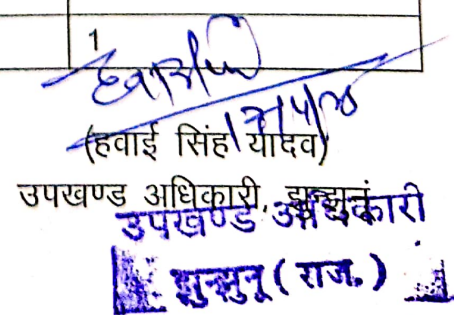 1
(हवाई सिंह यादव)
उपखण्ड अधिकारी, झुन्झुनूं
उपखण्ड अधिकारी
झुन्झुनू (राज.)